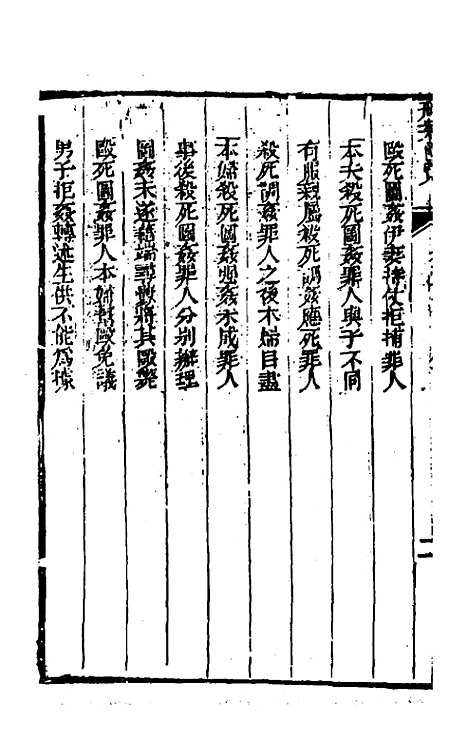 毆死圖姦伊妻持仗拒捕罪人
本夫殺死圖姦罪人與子不同
有服親屬殺死調姦應死罪人
殺死調姦罪人之後本婦自盡
本婦殺死圖姦強姦未成罪人
事後殺死圖姦罪人分別辦理
圖姦未遂藉端尋釁將其毆斃
毆死圖姦罪人本婦幫毆免議
男子拒姦轉述生供不能為據
二